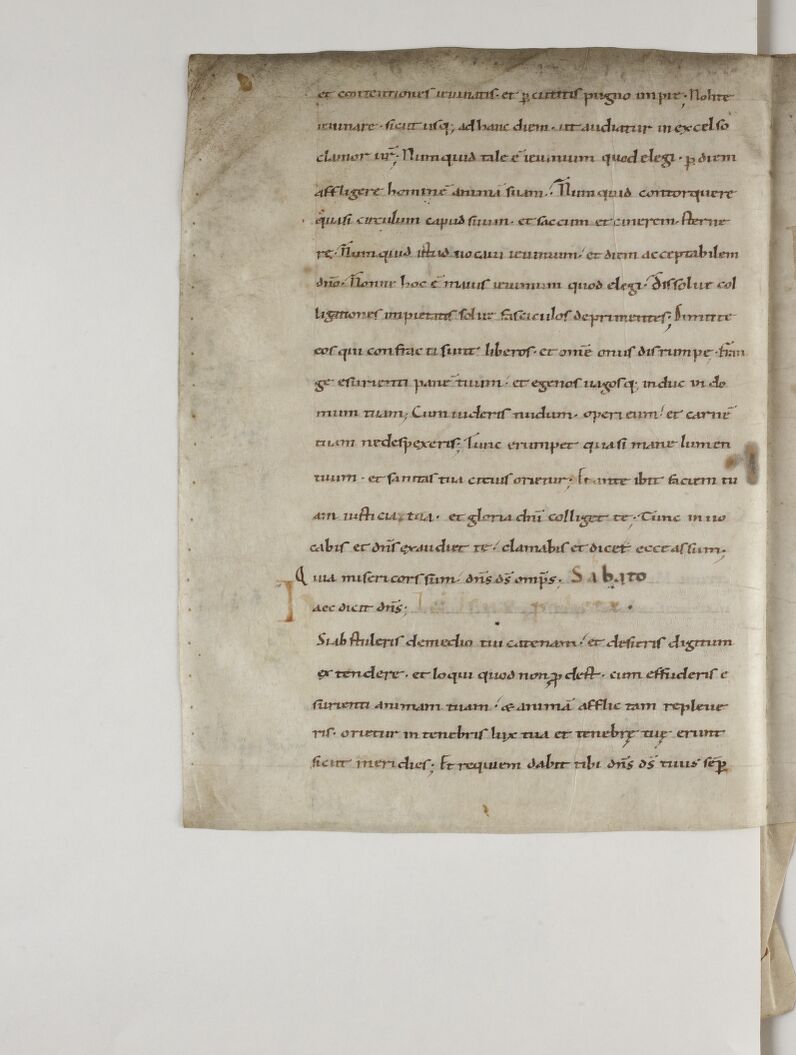 et contentiones ieiunatis· et ꝑcutitis pugno impie; Nolite
ieiunare· sicut usq; ad hanc diem· ut audiatur in excelso
clamor ur̄; Numquid tale ē ieiunium quod elegi· ꝑ diem
affligere hominē animā suam· Numquid contorquere
quasi circulum capud suum· et saccum et cinerem sterne
re· Numquid istud uocaui ieiunium· et diem acceptabilem
dn̄o· Nonne hoc ē maius ieiunium quod elegi· Dissolue col
ligationes impietatis solue fasciculos deprimentes; Dimitte
eos qui confracti sunt liberos· et om̄e onus disrumpe· fran
ge esurienti panē tuum· et egenos uagosq; induc in do
mum tuam; Cum uideris nudum· operi eum· et carnē
tuam ne despexeris; Tunc erumpet quasi mane lumen
tuum· et sanitas tua citius orietur; Et ante ibit faciem tu
am iusticia tua· et gloria dn̄i colliget te· Tunc inuo
cabis et dn̄s exaudiet te· clamabis et dicet ecce assum;
Quia misericors sum dn̄s ds̄ om̄ps· Sabato
aec dicit dn̄s;
Si abstuleris de medio tui catenam· et desieris digitum
extendere· et loqui quod non ꝓdest· cum effuderis e
surienti animam tuam· & animā afflictam repleue
ris· orietur in tenebris lux tua et tenebrę tuę erunt
sicut meridies; Et requiem dabit tibi dn̄s ds̄ tuus sēꝑ